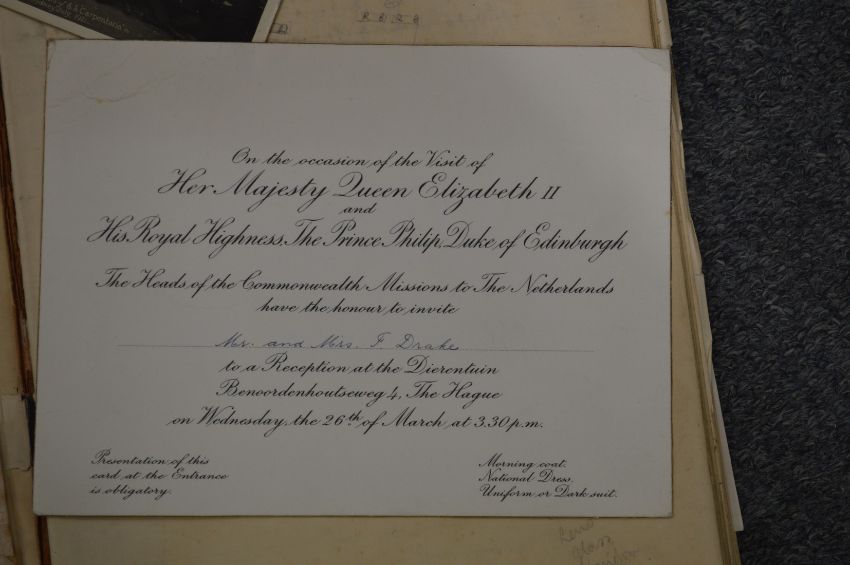 & A. Carpentaria
On the occasion of the Visit of
Her Majesty Queen Elizabeth II
and
His Royal Highness, The Prince Philip, Duke of Edinburgh
The Heads of the Commonwealth Missions to The Netherlands
have the honour to invite
Mr. and Mrs. F. Drake
to a Reception at the Dierentuin
Benoordenhoutseweg 4, The Hague
on Wednesday, the 26th of March at 3.30 p.m.
Presentation of this
card at the Entrance
is obligatory.
Morning coat.
National Dress.
Uniform or Dark suit.